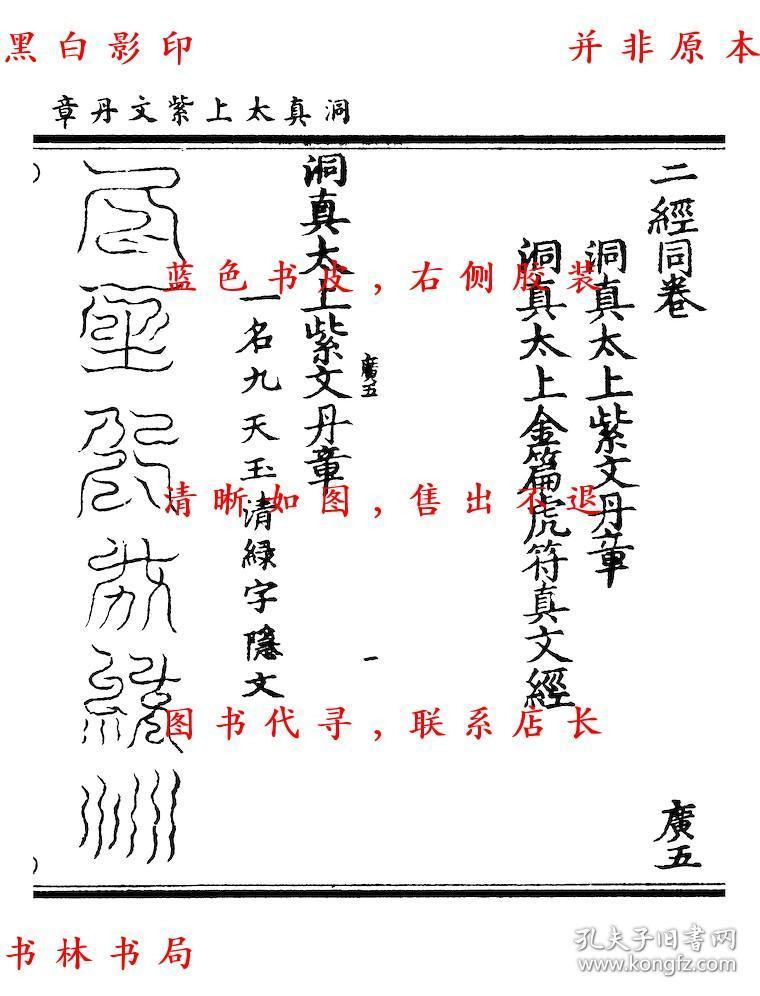 黑白影印
并非原本
洞真太上紫文丹章
二經同卷
廣五
洞真太上紫文丹章
洞真太上金篇虎符真文經
洞真太上紫文丹章
廣五
一
一名九天玉清緑字隱文
蓝色书皮，右侧胶装
清晰如图，售出不退
图书代寻，联系店长
书林书局
孔夫子旧书网
www.kongfz.com